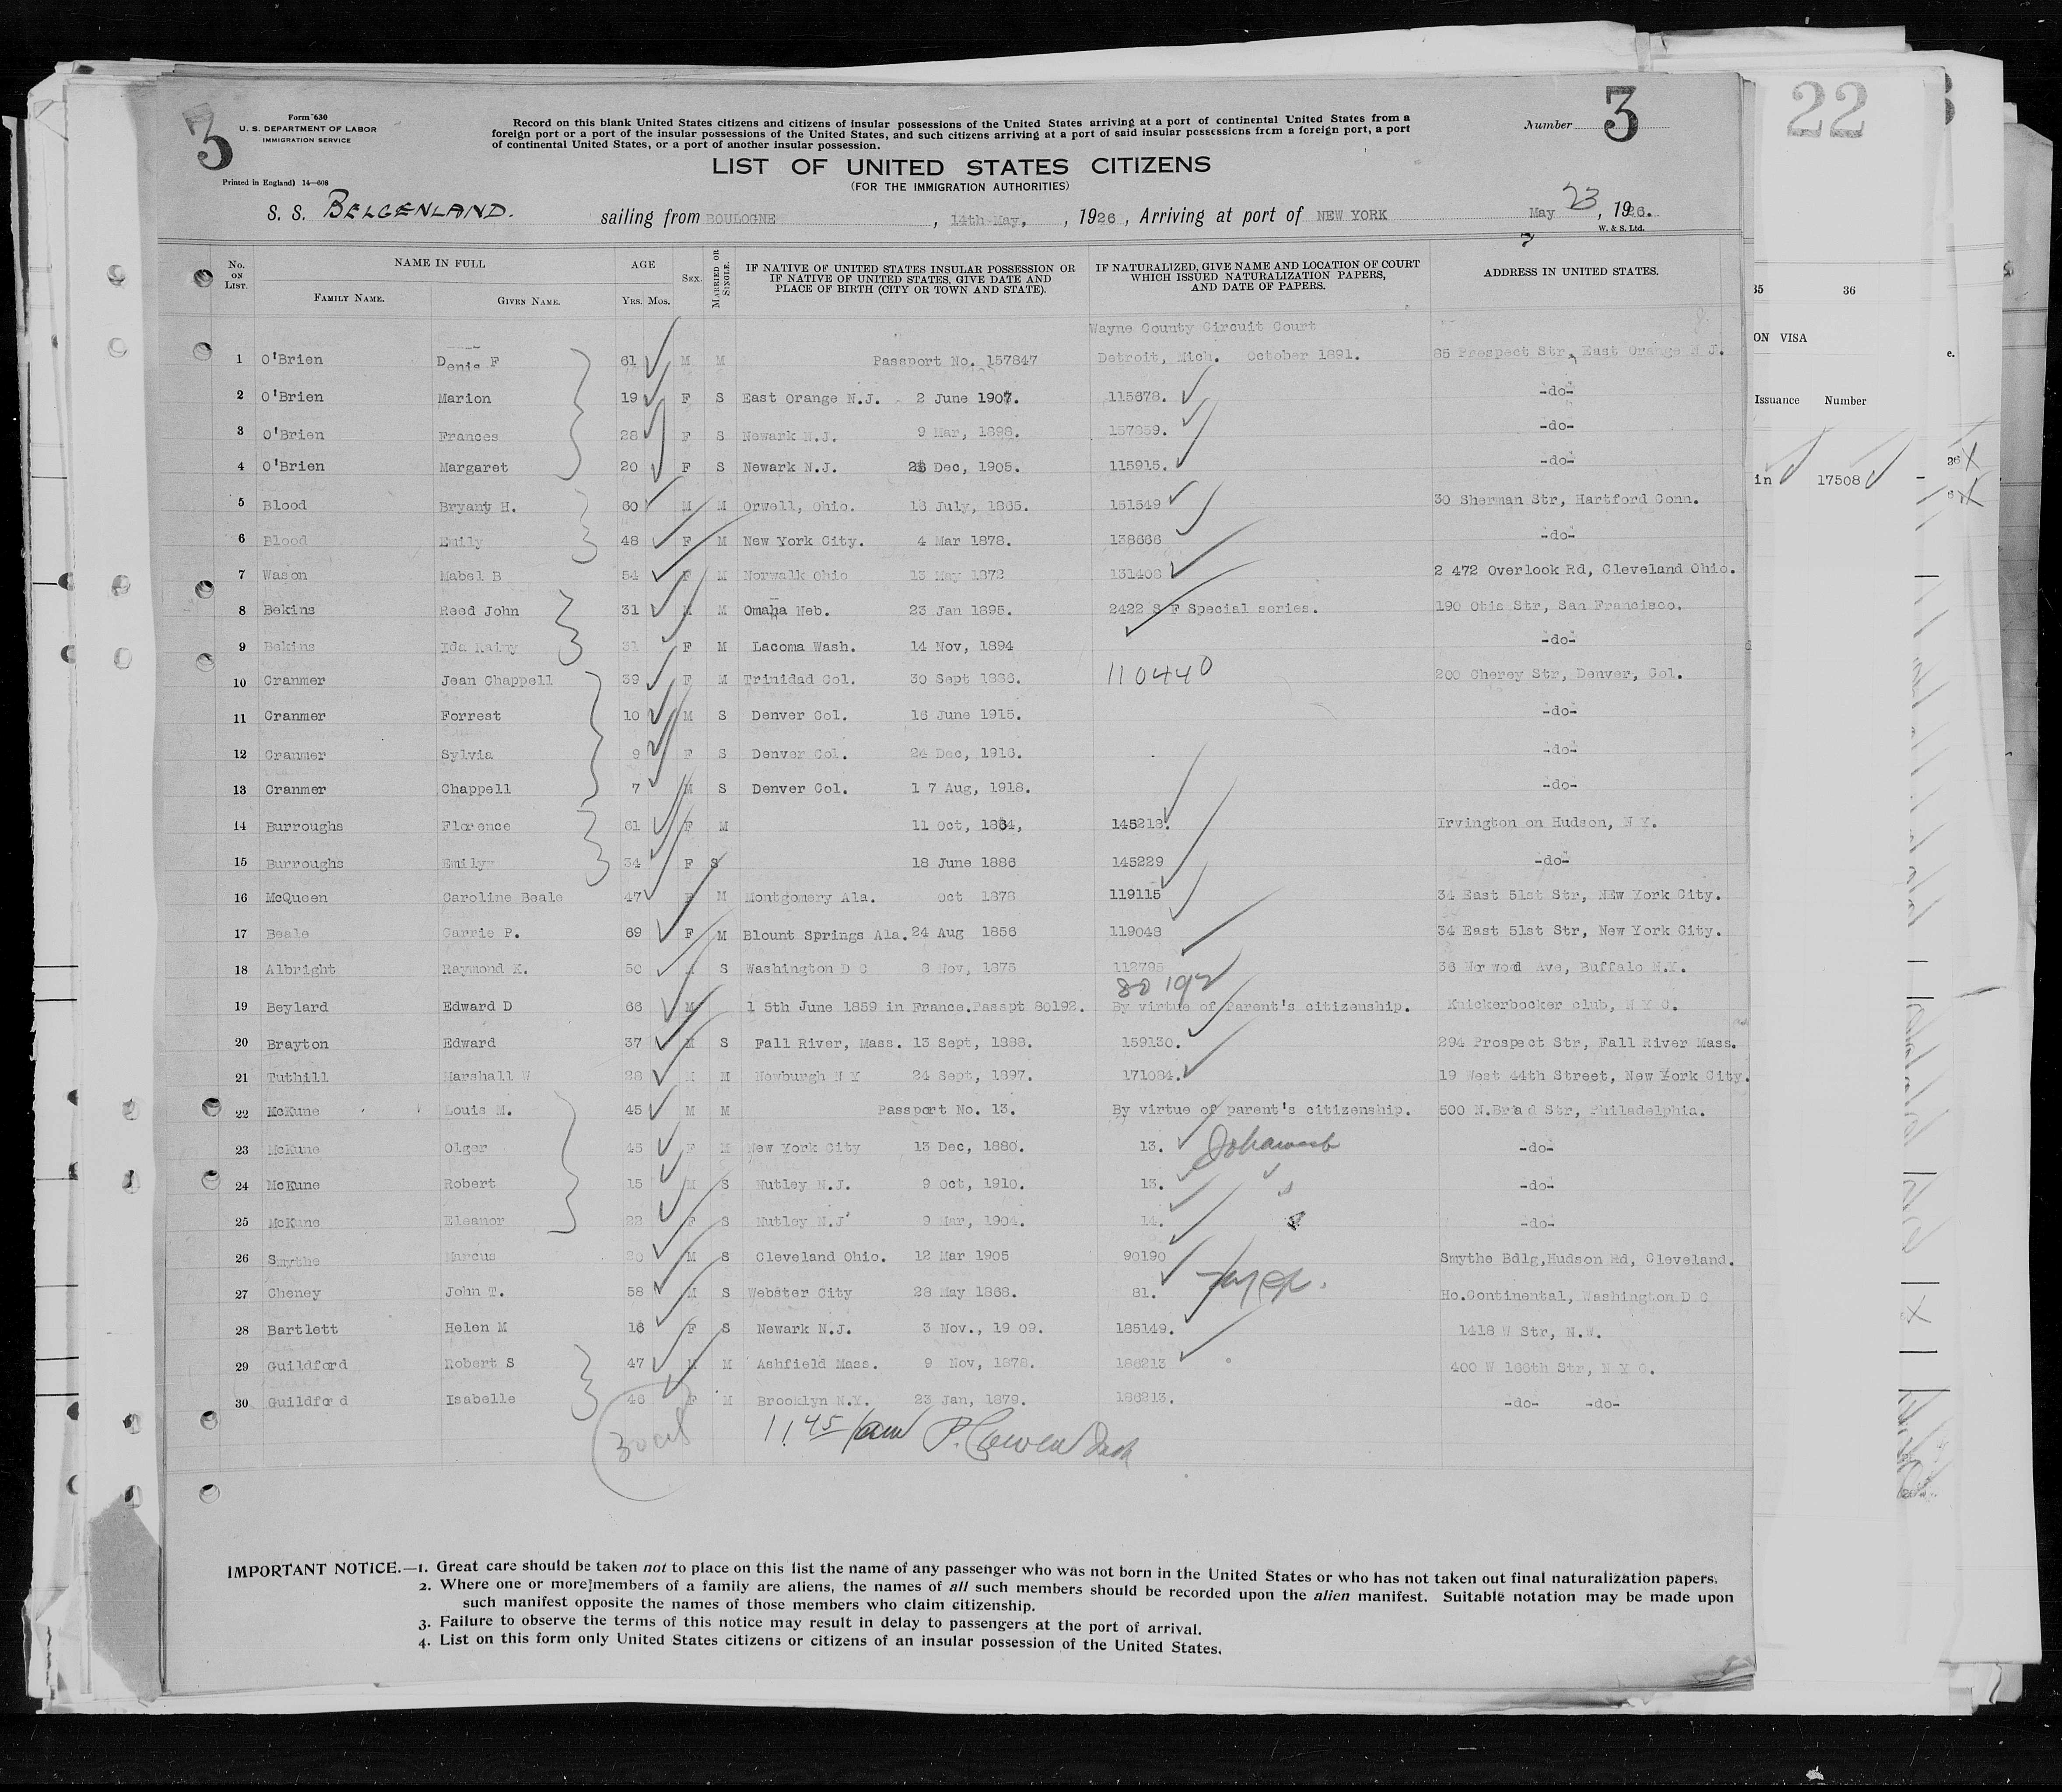 3
Form 630
U. S. DEPARTMENT OF LABOR
IMMIGRATION SERVICE
Printed in England) 14—608
Record on this blank United States citizens and citizens of insular possessions of the United States arriving at a port of continental United States from a
foreign port or a port of the insular possessions of the United States, and such citizens arriving at a port of said insular possessions from a foreign port, a port
of continental United States, or a port of another insular possession.
Number 3
22
LIST OF UNITED STATES CITIZENS
(FOR THE IMMIGRATION AUTHORITIES)
S. S. BELGENLAND. sailing from BOULOGNE, 14th May, , 1926, Arriving at port of NEW YORK May 23, 1926.
W. & S. Ltd.
No. ON LIST. NAME IN FULL AGE SEX. MARRIED OR SINGLE. IF NATIVE OF UNITED STATES INSULAR POSSESSION OR IF NATIVE OF UNITED STATES, GIVE DATE AND PLACE OF BIRTH (CITY OR TOWN AND STATE). IF NATURALIZED, GIVE NAME AND LOCATION OF COURT WHICH ISSUED NATURALIZATION PAPERS, AND DATE OF PAPERS. ADDRESS IN UNITED STATES.
FAMILY NAME. GIVEN NAME. YRS. MOS.
35 36
ON VISA
Issuance Number
in 17508
Wayne County Circuit Court
1 O'Brien Denis F 61 M M Passport No. 157847 Detroit, Mich. October 1891. 85 Prospect Str, East Orange N J.
2 O'Brien Marion 19 F S East Orange N.J. 2 June 1907. 115678. -do-
3 O'Brien Frances 28 F S Newark N.J. 9 Mar, 1898. 157859. -do-
4 O'Brien Margaret 20 F S Newark N.J. 26 Dec, 1905. 115915. -do-
5 Blood Bryant H. 60 M M Orwell, Ohio. 16 July, 1865. 151549 30 Sherman Str, Hartford Conn.
6 Blood Emily 48 F M New York City. 4 Mar 1878. 138666 -do-
7 Wason Mabel B 54 F M Norwalk Ohio 13 May 1872 131408 2 472 Overlook Rd, Cleveland Ohio.
8 Bekins Reed John 31 M M Omaha Neb. 23 Jan 1895. 2422 S F Special series. 190 Otis Str, San Francisco.
9 Bekins Ida Rainy 31 F M Lacoma Wash. 14 Nov, 1894 -do-
10 Cranmer Jean Chappell 39 F M Trinidad Col. 30 Sept 1886. 110440 200 Cherey Str, Denver, Col.
11 Cranmer Forrest 10 M S Denver Col. 16 June 1915. -do-
12 Cranmer Sylvia 9 F S Denver Col. 24 Dec, 1916. -do-
13 Cranmer Chappell 7 M S Denver Col. 1 7 Aug, 1918. -do-
14 Burroughs Florence 61 F M 11 Oct, 1864, 145218. Irvington on Hudson, N Y.
15 Burroughs Emily 34 F S 18 June 1886 145229 -do-
16 McQueen Caroline Beale 47 F M Montgomery Ala. Oct 1878 119115 34 East 51st Str, NEw York City.
17 Beale Carrie P. 69 F M Blount Springs Ala. 24 Aug 1856 119048 34 East 51st Str, New York City.
18 Albright Raymond K. 50 M S Washington D C 8 Nov, 1875 112795 36 Norwood Ave, Buffalo N.Y.
80192
19 Beylard Edward D 66 M 1 5th June 1859 in France. Passpt 80192. By virtue of Parent's citizenship. Knickerbocker club, N Y C.
20 Brayton Edward 37 M S Fall River, Mass. 13 Sept, 1888. 159130. 294 Prospect Str, Fall River Mass.
21 Tuthill Marshall W 28 M M Newburgh N Y 24 Sept, 1897. 171084. 19 West 44th Street, New York City.
22 McKune Louis M. 45 M M Passport No. 13. By virtue of parent's citizenship. 500 N.Brad Str, Philadelphia.
23 McKune Olger 45 F M New York City 13 Dec, 1880. 13. -do-
24 McKune Robert 15 M S Nutley N.J. 9 Oct, 1910. 13. -do-
25 McKune Eleanor 22 F S Nutley N.J 9 Mar, 1904. 14. -do-
26 Smythe Marcus 20 M S Cleveland Ohio. 12 Mar 1905 90190 Smythe Bdlg,Hudson Rd, Cleveland.
27 Cheney John T. 58 M S Webster City 28 May 1868. 81. Ho.Continental, Washington D C
28 Bartlett Helen M 16 F S Newark N.J. 3 Nov., 19 09. 185149. 1418 W Str, N.W.
29 Guildford Robert S 47 M M Ashfield Mass. 9 Nov, 1878. 186213 400 W 166th Str, N Y C.
30 Guildford Isabelle 46 F M Brooklyn N.Y. 23 Jan, 1879. 186213. -do- -do-
11.45 am P. Cowen
IMPORTANT NOTICE.—1. Great care should be taken not to place on this list the name of any passenger who was not born in the United States or who has not taken out final naturalization papers.
2. Where one or more members of a family are aliens, the names of all such members should be recorded upon the alien manifest. Suitable notation may be made upon
such manifest opposite the names of those members who claim citizenship.
3. Failure to observe the terms of this notice may result in delay to passengers at the port of arrival.
4. List on this form only United States citizens or citizens of an insular possession of the United States.